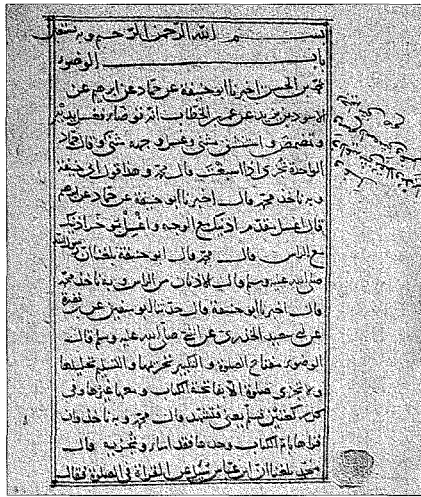 بسم الله الرحمن الرحيم وبه نستعين
باب الوضوء
محمد بن الحسن اخبرنا ابو حنيفة عن حماد عن ابرهيم عن
الاسود بن يزيد عن عمر بن الخطاب انه توضا فغسل يديه
وتمضمض واستنشق مثنى وغسل وجهه مثنى وقال حماد
الواحدة تجزئ اذا اسبغت قال محمد وهذا قول ابي حنيفة
وبه ناخذ محمد قال اخبرنا ابو حنيفة عن حماد عن ابرهيم
قال اغسل مقدم اذنيك مع الوجه وامسح موخر اذنيك
مع الراس قال محمد قال ابو حنيفة بلغنا ان رسول الله
صلى الله عليه وسلم قال الاذنان من الراس وبه ناخذ محمد
قال اخبرنا ابو حنيفة قال حدثنا ابو سفين عن ابي نضرة
عن ابي سعيد الخدري عن النبي صلى الله عليه وسلم قال
الوضوء مفتاح الصلوة والتكبير تحريمها والتسليم تحليلها
ولا تجزئ صلوة الا بفاتحة الكتاب ومعها غيرها وفي
كل ركعتين تسلم يعني فتشهد قال محمد وبه ناخذ وان
قرا بام الكتاب وحدها فقد اساء وتجزيه قال
محمد بلغنا ان ابن عباس سئل عن القراة في الصلوة فقال